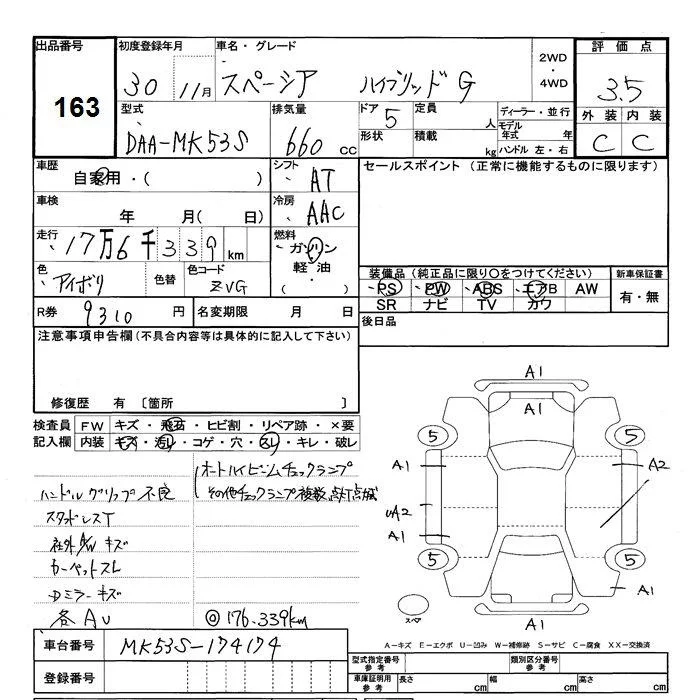 出品番号 初度登録年月 車名・グレード 2WD・4WD 評価点
163 30 11月 スペーシア ハイブリッド G 3.5
型式 排気量 ドア 5 定員 人 ディーラー・並行 外装 内装
DAA-MK53S 660 cc 形状 積載 kg モデル年式 年 ハンドル 左・右 C C
車歴 シフト セールスポイント (正常に機能するものに限ります)
自家用・( ) AT
車検 冷房
年 月( 日) AAC
走行 17万6千339km 燃料 ガソリン
色 色替 色コード 軽油 装備品 (純正品に限り○をつけてください) 新車保証書
アイボリ ZVG ・( ) PS PW ABS エアB AW 有・無
SR ナビ TV カワ
R券 9310 円 名変期限 月 日 後日品
注意事項申告欄 (不具合内容等は具体的に記入して下さい)
修復歴 有 〔箇所 〕
検査員 FW キズ・飛石・ヒビ割・リペア跡・×要
記入欄 内装 キズ・汚レ・コゲ・穴・スレ・キレ・破レ
オートハイビームチェックランプ
ハンドルグリップ不良 その他チェックランプ複数点灯点滅
スタッドレスT
社外A/W キズ
カーペットスレ
Dミラーキズ
各AU ◎176.339km
A1
A1
5 5
A1 A2
UA2
A1
5 5
A1
スペア
A1
A1
A-キズ E-エクボ U-凹み W-補修跡 S-サビ C-腐食 XX-交換済
車台番号 MK53S-174174
型式指定番号 参考 類別区分番号 参考
登録番号 車庫証明用 参考 長さ cm 幅 cm 高さ cm